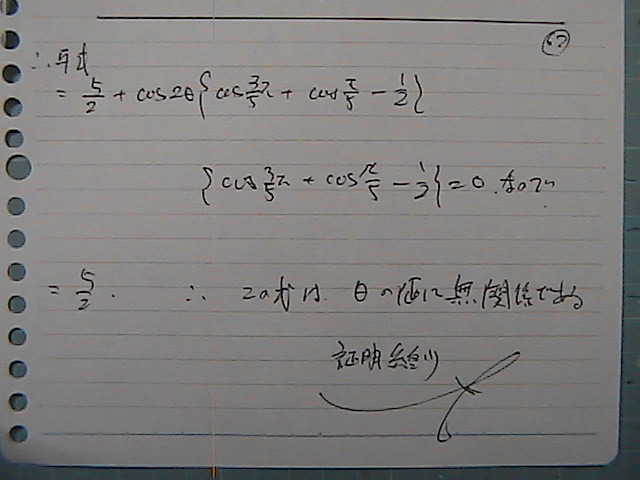 67
∴ 与式
= 5/2 + cos2θ{cos 3/5 π + cos π/5 − 1/2}
{cos 3/5 π + cos π/5 − 1/2} = 0 なので
= 5/2. ∴ この式は θの値に無関係である
証明終り